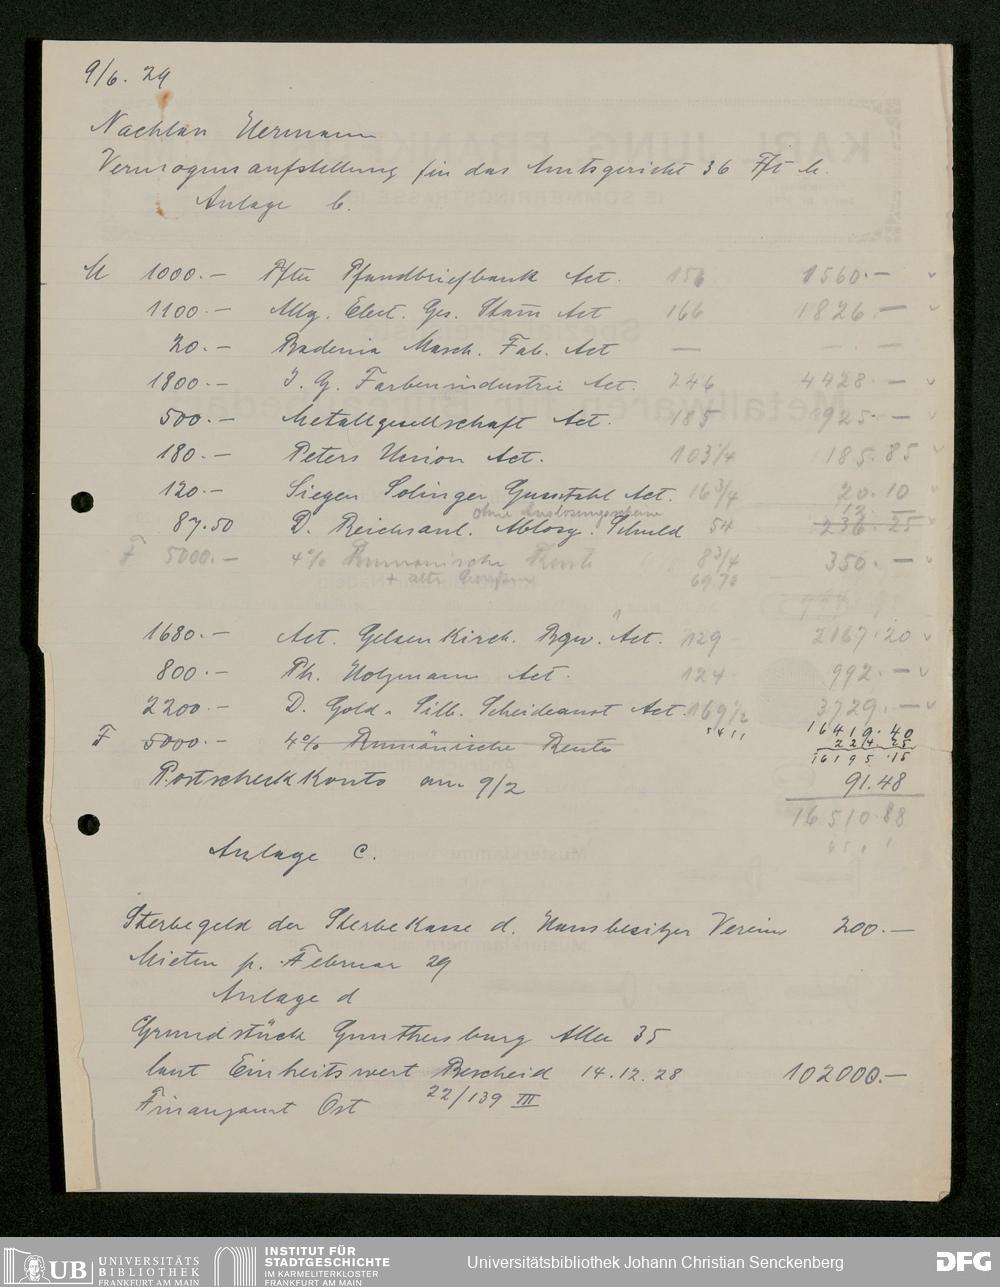 9/6. 29
Nachlass Hermann
Vermögensaufstellung für das Amtsgericht 36 Fft M.
Anlage b.
M 1000.— Ffter Pfandbriefbank Act. 156 1560.—
1100.— Allg. Elect. Ges. Stam Act 166 1826.—
20.— Badenia Masch. Fab. Act — —.—
1800.— I. G. Farbenindustrie Act. 246 4428.—
500.— Metallgesellschaft Act. 185 925.—
180.— Peters Union Act. 103 1/4 185.85
120.— Siegen Solinger Gussstahl Act. 16 3/4 20.10
ohne Auslosungsscheine 12.—
87.50 D. Reichsanl. Ablösg. Schuld 54 236.25
F 5000.— 4% Rumänische Rente 8 3/4 350.—
+ alte 69.70
1680.— Act. Gelsenkirch. Bgw. Act. 129 2167.20
800.— Ph. Holzmann Act. 124 992.—
2200.— D. Gold u. Silb. Scheideanst Act. 169 1/2 3729.—
F 5000.— 4% Rumänische Rente 16419.40
224.25
16195.15
Postscheckkonto am 9/2 91.48
16510.88
Anlage c.
Sterbegeld der Sterbekasse d. Hausbesitzer Vereins 200.—
Mieten p. Februar 29
Anlage d
Grundstück Gunthersburg Allee 35
laut Einheitswert Bescheid 14.12.28 102000.—
Finanzamt Ost 22/139 III
UB UNIVERSITÄTS BIBLIOTHEK FRANKFURT AM MAIN
INSTITUT FÜR STADTGESCHICHTE IM KARMELITERKLOSTER FRANKFURT AM MAIN
Universitätsbibliothek Johann Christian Senckenberg
DFG